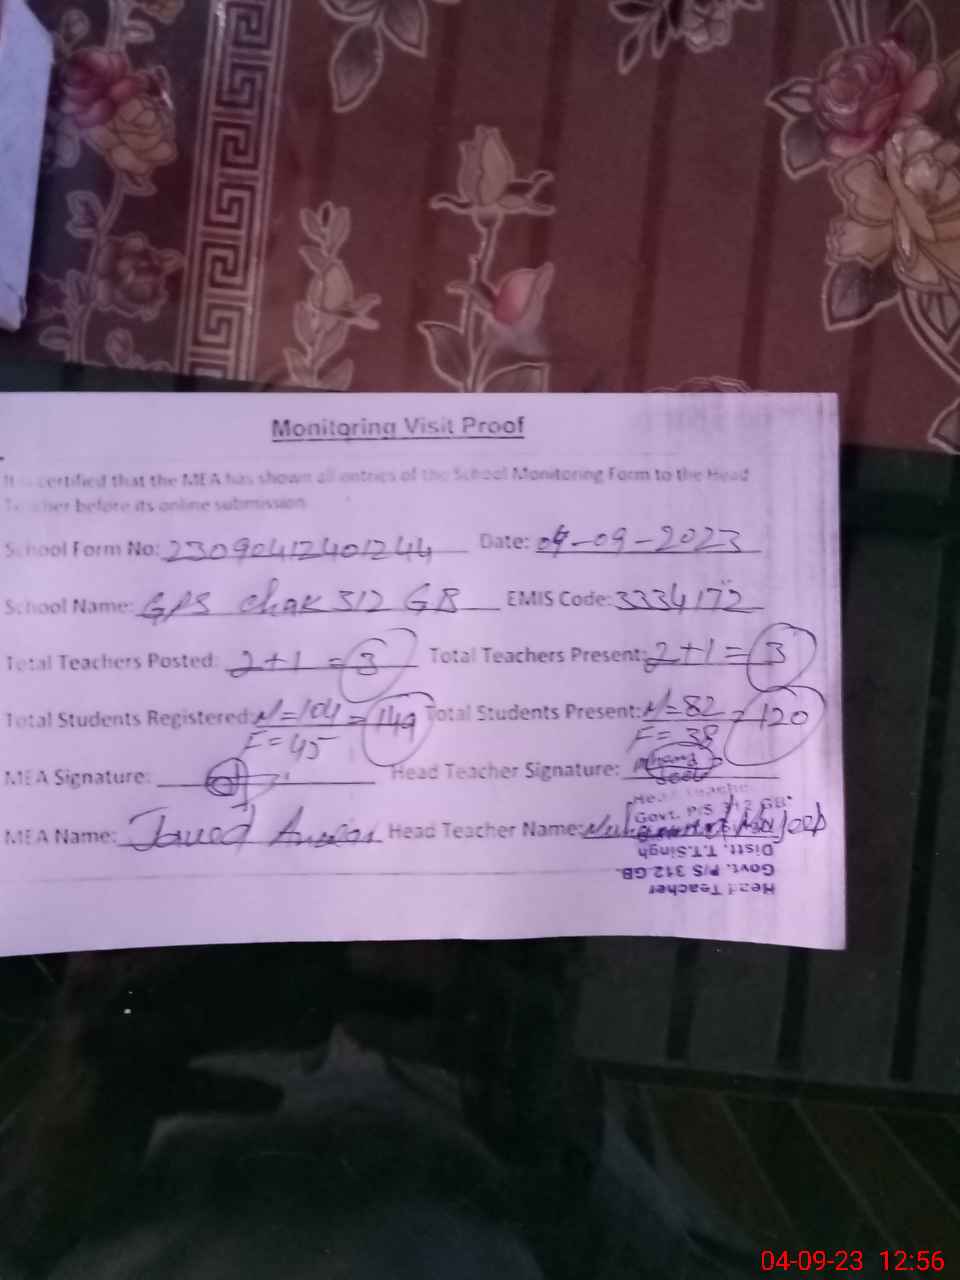 Monitoring Visit Proof
It is certified that the MEA has shown all entries of the School Monitoring Form to the Head
Teacher before its online submission
School Form No: 23090412401244 Date: 04-09-2023
School Name: GPS Chak 312 GB EMIS Code: 3334172
Total Teachers Posted: 2+1 = 3 Total Teachers Present: 2+1 = 3
Total Students Registered: N=104 = 149 Total Students Present: N=82 = 120
F=45 F=38
MEA Signature: Head Teacher Signature:
Head Teacher
Govt. P/S 312 GB.
MEA Name: Javed Head Teacher Name:
Distt. T.T.Singh
Govt. P/S 312.GB.
Head Teacher
04-09-23 12:56